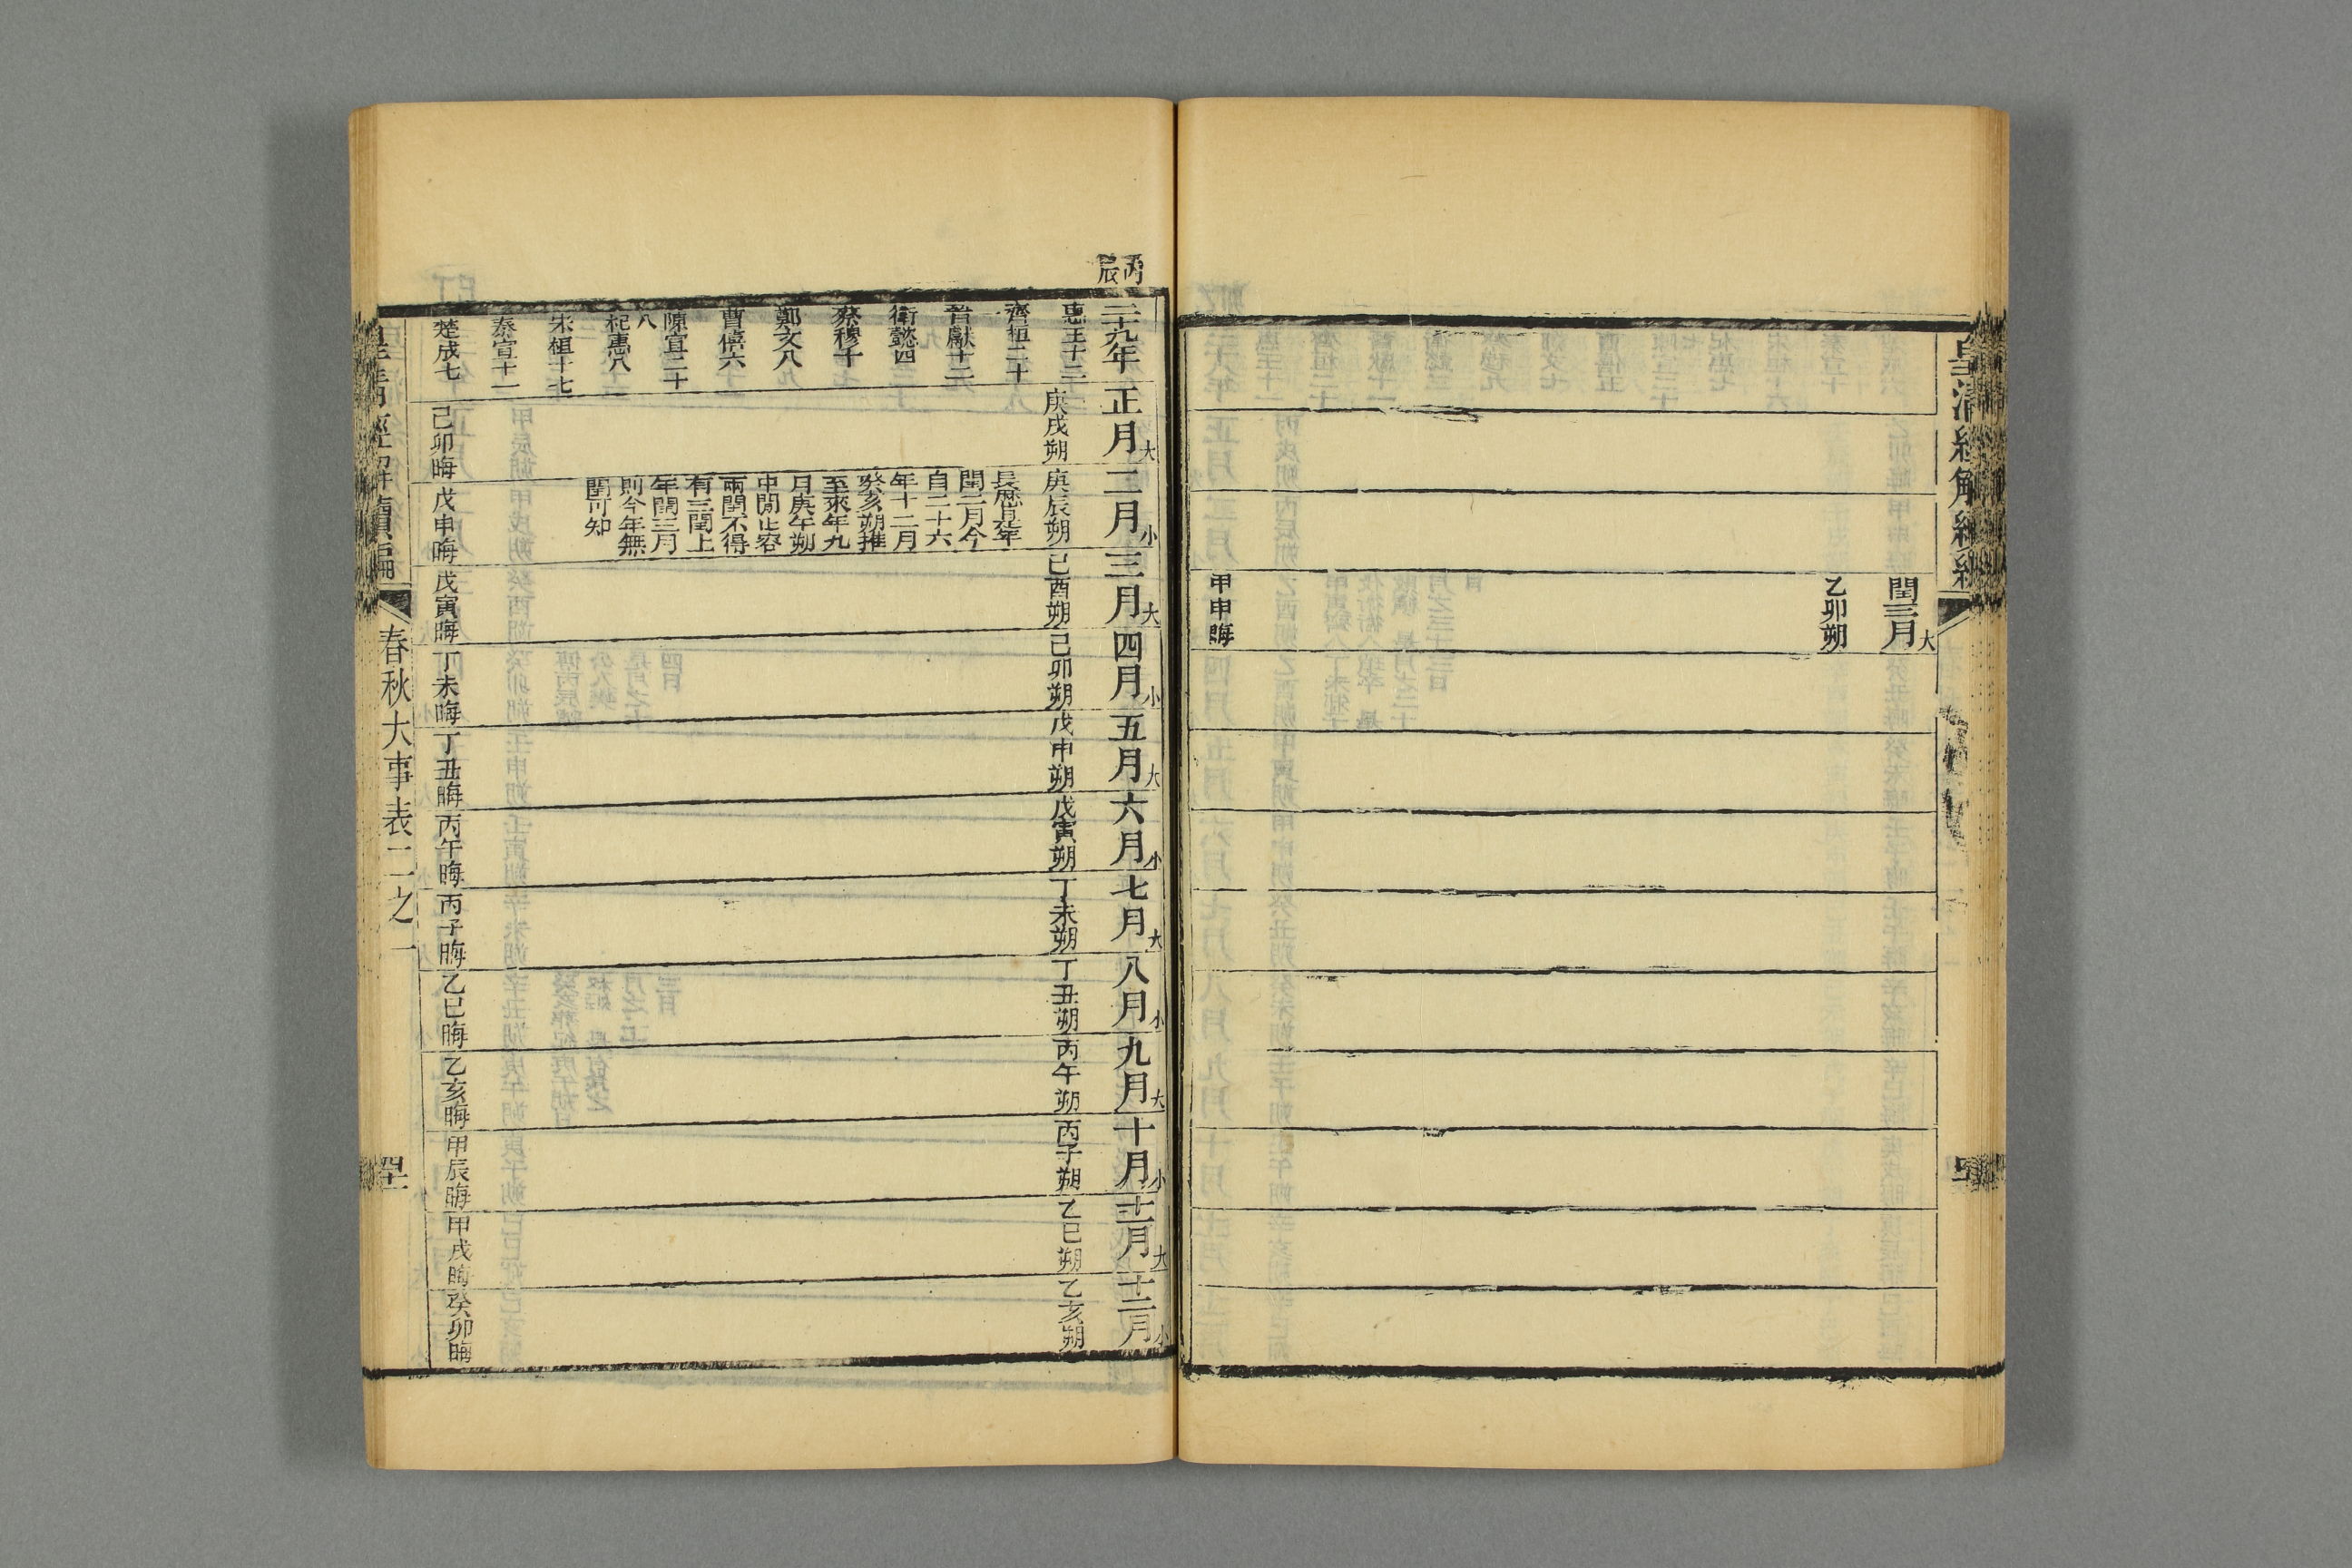 閏三月大
乙卯朔
甲申晦
丙辰
二十九年
惠王十二
齊桓二十
晉獻十二
衛懿四
蔡穆十
鄭文八
曹僖六
陳宣二十
八
杞惠八
宋桓十七
秦宣十一
楚成七
正月大
庚戌朔
己卯晦
二月小
庚辰朔
長歷是年
閏二月今
自二十六
年十二月
癸亥朔推
至來年九
月庚午朔
中閒止容
兩閏不得
有三閏上
年閏三月
則今年無
閏可知
戊申晦
三月大
己酉朔
戊寅晦
四月小
己卯朔
丁未晦
五月大
戊申朔
丁丑晦
六月小
戊寅朔
丙午晦
七月大
丁未朔
丙子晦
八月小
丁丑朔
乙巳晦
九月大
丙午朔
乙亥晦
十月小
丙子朔
甲辰晦
十一月大
乙巳朔
甲戌晦
十二月小
乙亥朔
癸卯晦
皇清經解續編
春秋大事表二之一